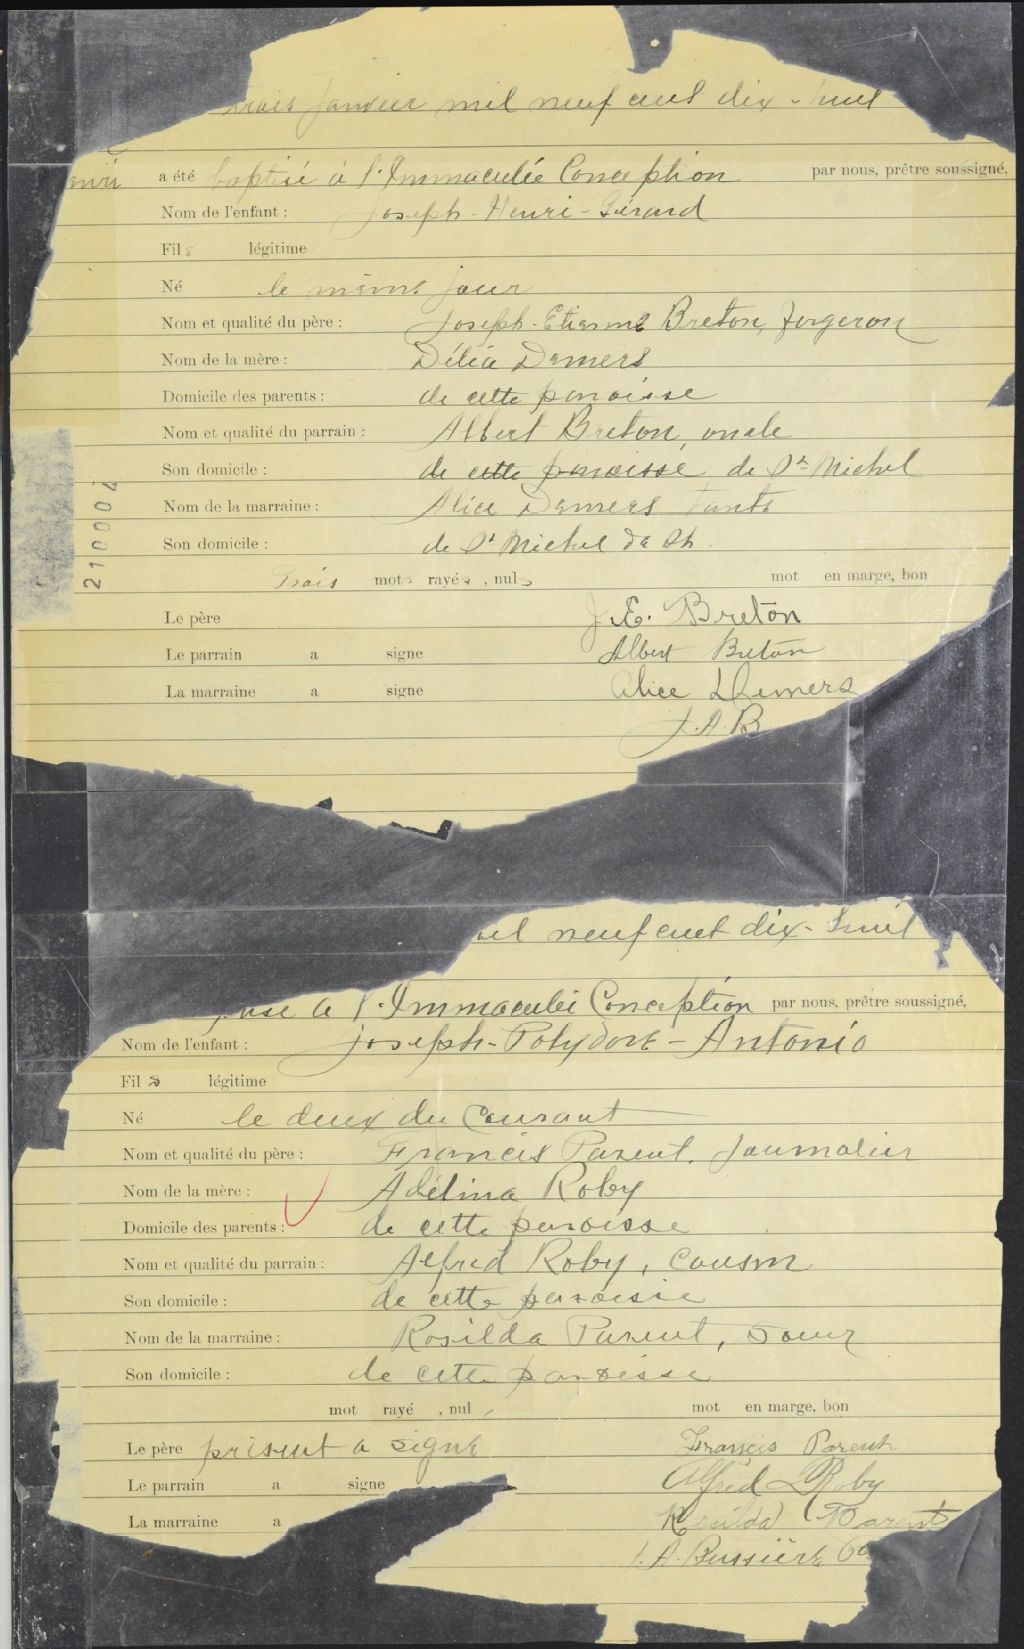 trois janvier mil neuf cent dix-huit
a été baptisé à l'Immaculée Conception par nous, prêtre soussigné,
Nom de l'enfant : Joseph-Henri-Gérard
Fils légitime
Né le même jour
Nom et qualité du père : Joseph-Etienne Breton, forgeron
Nom de la mère : Délia Demers
Domicile des parents : de cette paroisse
Nom et qualité du parrain : Albert Breton, oncle
Son domicile : de cette paroisse de St Michel
Nom de la marraine : Alice Demers tante
Son domicile : de St Michel de Ch.
Trois mots rayés, nuls mot en marge, bon
Le père J. E. Breton
Le parrain a signe Albert Breton
La marraine a signe Alice Demers
J. A. B
210004
il neuf cent dix-huit
à l'Immaculée Conception par nous, prêtre soussigné,
Nom de l'enfant : Joseph-Polydore-Antonio
Fils légitime
Né le deux du courant
Nom et qualité du père : Francis Parent, journalier
Nom de la mère : Adélina Roby
Domicile des parents : de cette paroisse
Nom et qualité du parrain : Alfred Roby, cousin
Son domicile : de cette paroisse
Nom de la marraine : Rosilda Parent, soeur
Son domicile : de cette paroisse
mot rayé , nul mot en marge, bon
Le père présent a signé Francis Parent
Le parrain a signe Alfred Roby
La marraine a Rosilda Parent
J. A. Bussière